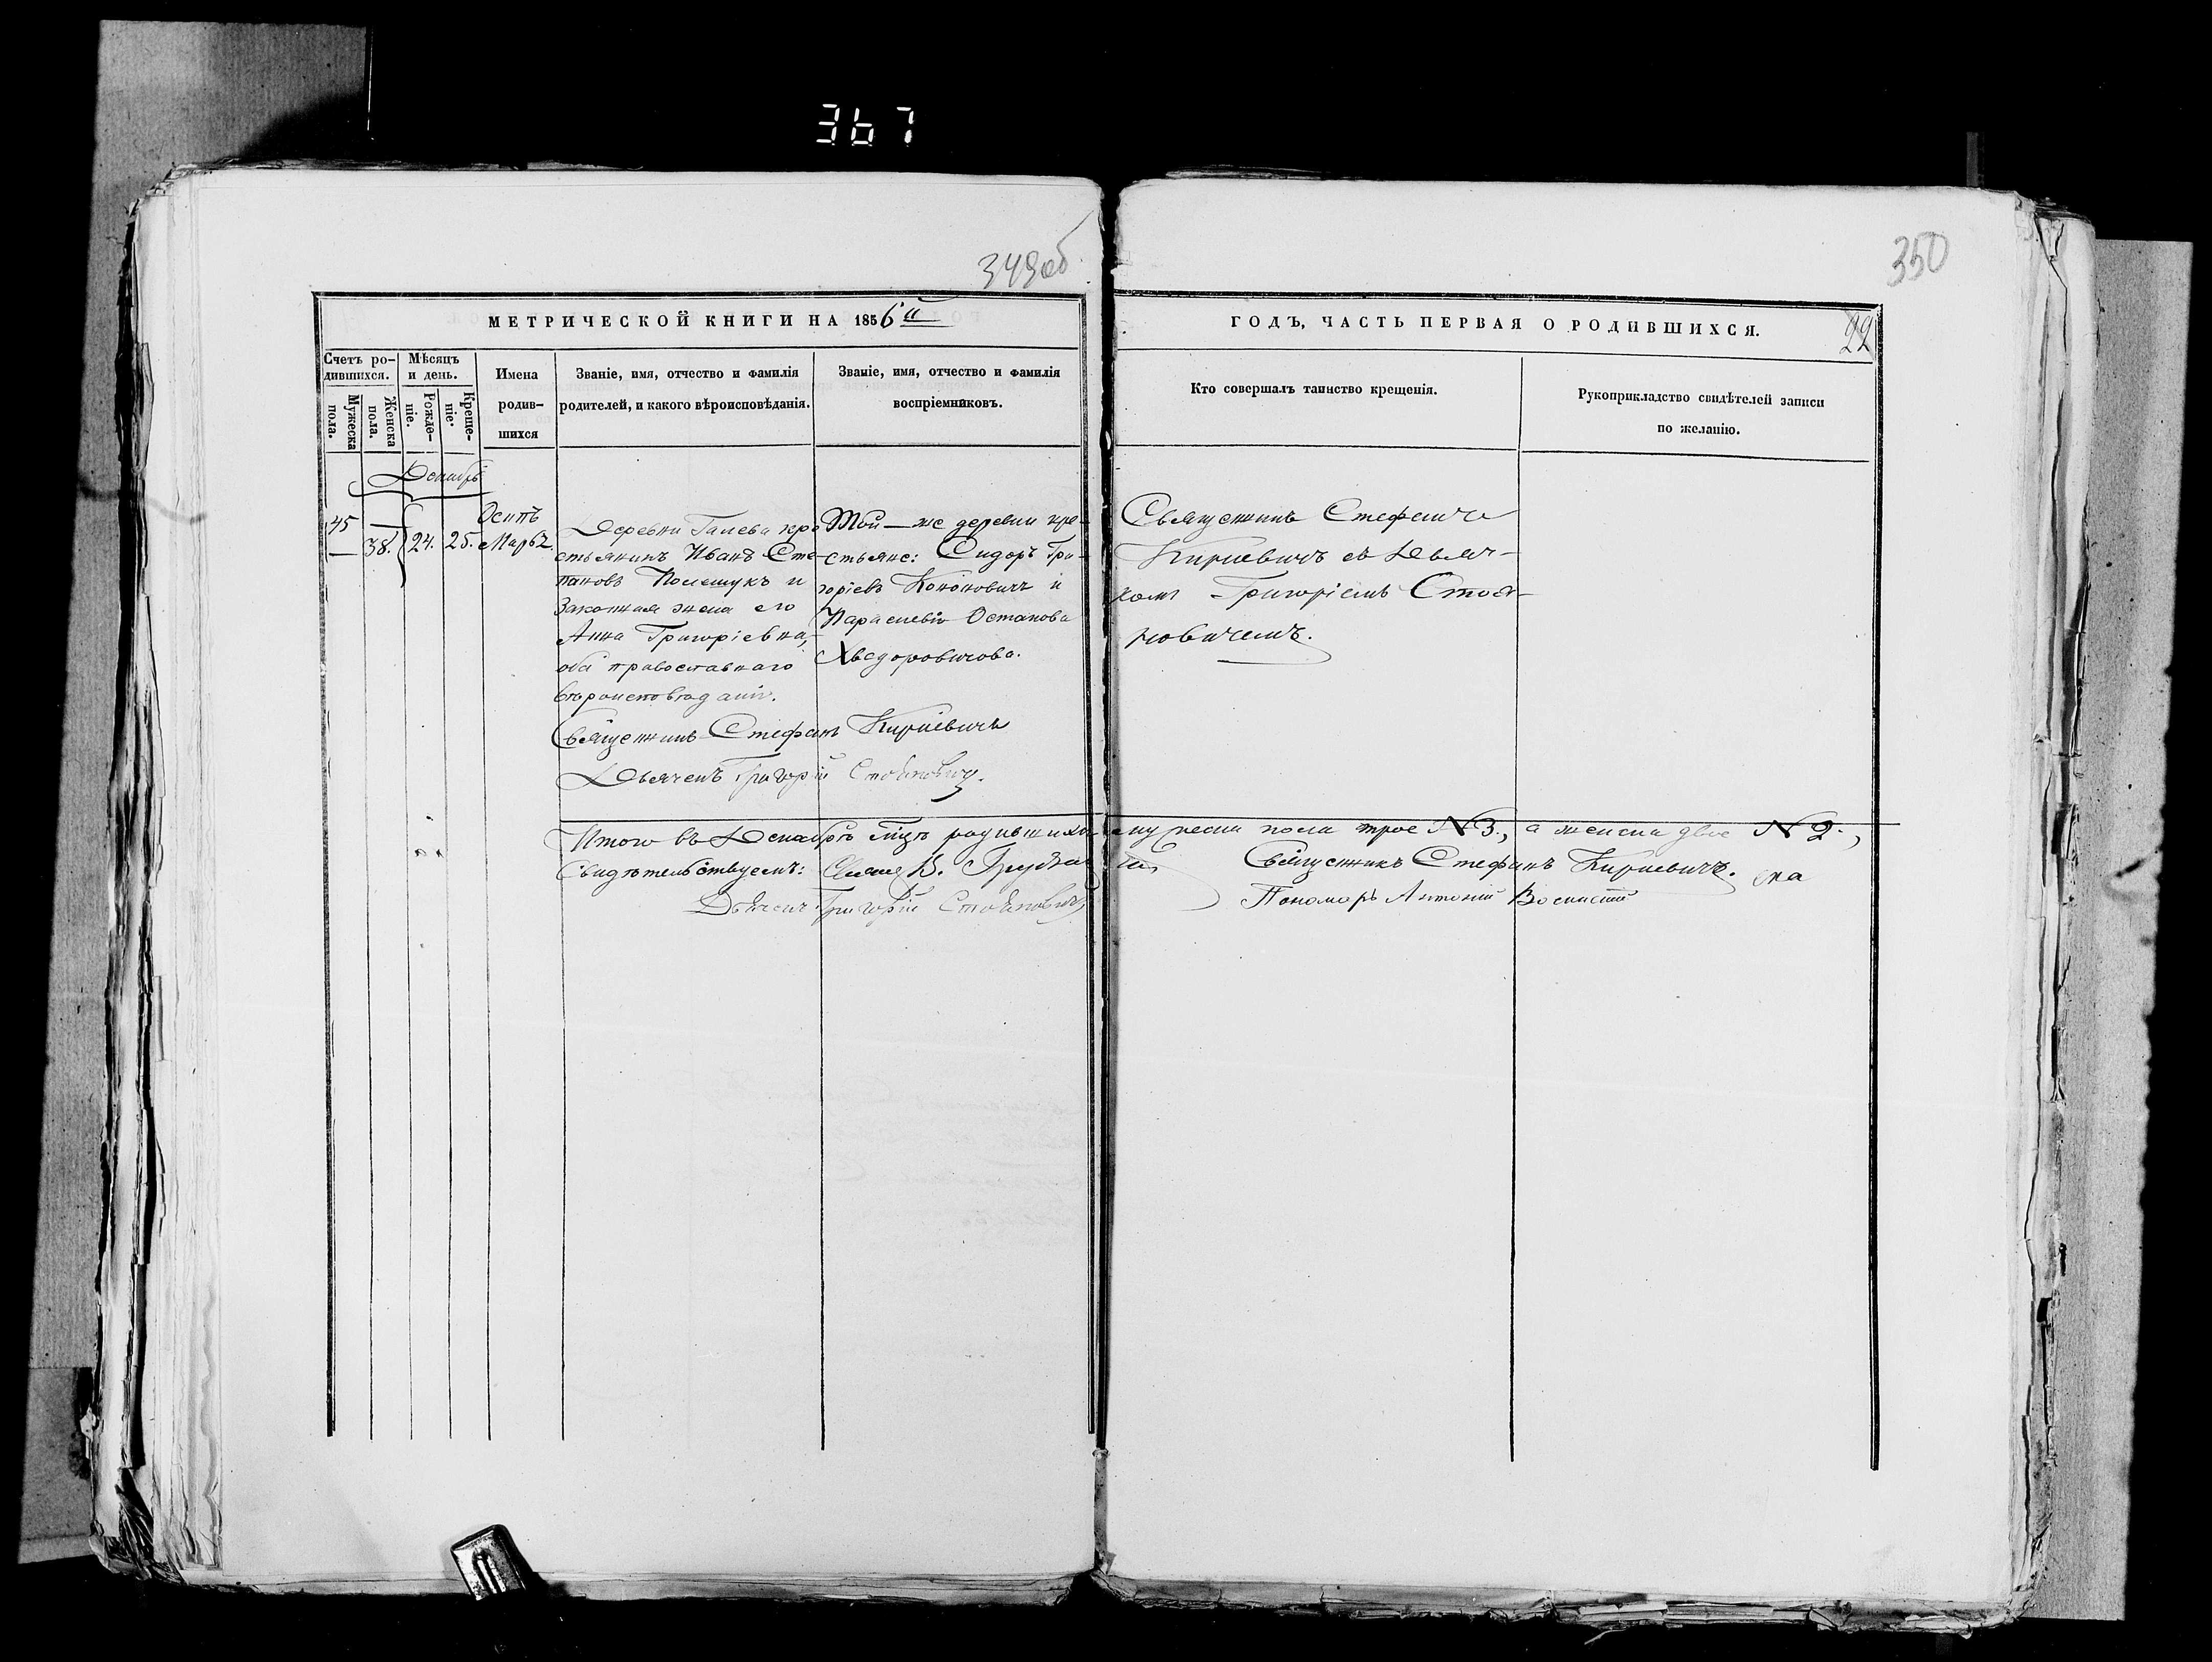 367
349об
350
МЕТРИЧЕСКОЙ КНИГИ НА 1856й
ГОДЪ, ЧАСТЬ ПЕРВАЯ О РОДИВШИХСЯ.
22
Счетъ ро-
дившихся.
Мужеска
пола.
Женска
пола.
Мѣсяцъ
и день.
Рожде-
ніе.
Креще-
ніе.
Имена
родив-
шихся
Званіе, имя, отчество и фамилія
родителей, и какого вѣроисповѣданія.
Званіе, имя, отчество и фамилія
воспріемниковъ.
Кто совершалъ таинство крещенія.
Рукоприкладство свидѣтелей записи
по желанію.
Декабрь
45 —
— 38. 24. 25.
Осипъ
Марѳа.
Деревни кре-
стьянинъ Иванъ Сте-
пановъ Полещукъ и
законная жена его
Анна Григоріевна,
оба православнаго
вѣроисповѣданія.
Той-же деревни кре-
стьяне: Сидоръ Гри-
горіевъ Кононовичъ и
Параскевія Остапова
Хведоровичова.
Священникъ Стефанъ
Киркевичъ съ Дьяч-
комъ Григоріемъ Стоя-
новичемъ.
Священникъ Стефанъ Киркевичъ
Дьячекъ Григорій Стояновичъ.
Итого въ Декабрѣ мцѣ родившихся мужеска пола трое N 3., а женска двое N 2.,
Свидѣтельствуемъ: Священникъ Стефанъ Киркевичъ.
Дьячекъ Григорій Стояновичъ
Пономарь Антоній